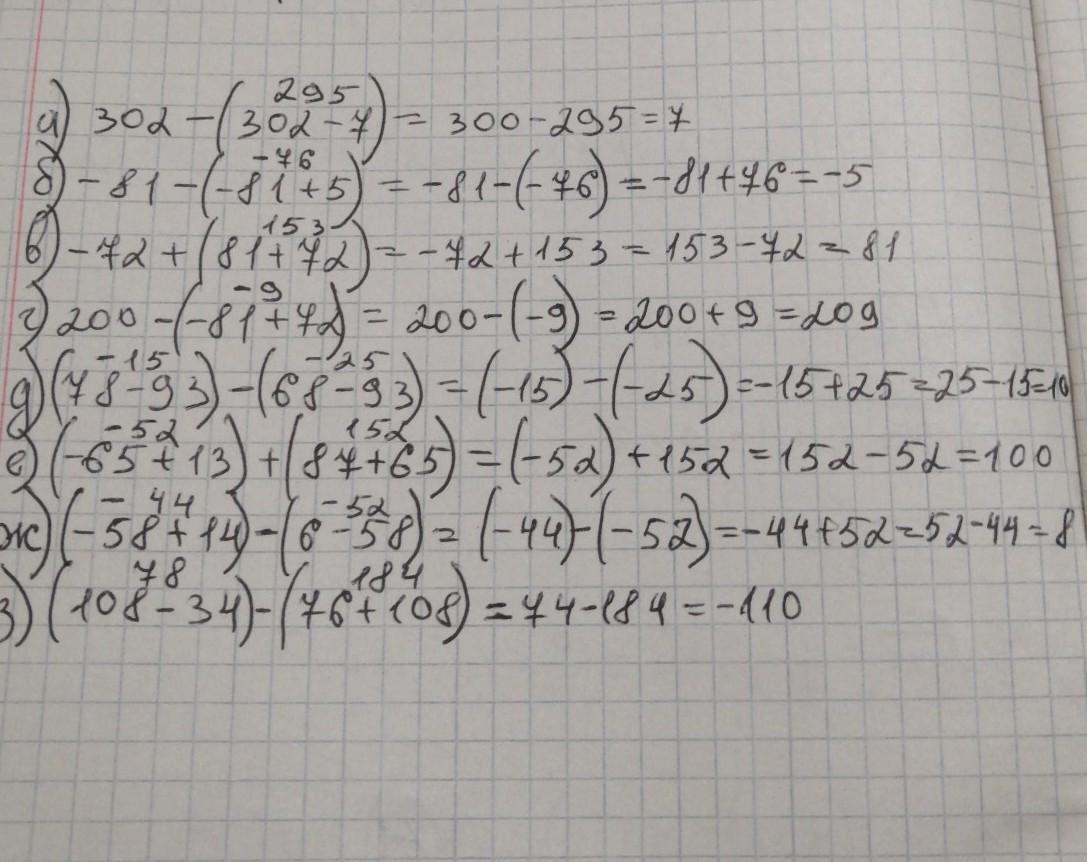 295
а) 302 - (302 - 7) = 300 - 295 = 7
-76
б) - 81 - (-81 + 5) = -81 - (-76) = -81 + 76 = -5
153
в) - 72 + (81 + 72) = -72 + 153 = 153 - 72 = 81
-9
г) 200 - (-81 + 72) = 200 - (-9) = 200 + 9 = 209
-15 -25
д) (78 - 93) - (68 - 93) = (-15) - (-25) = -15 + 25 = 25 - 15 = 10
-52 152
е) (-65 + 13) + (87 + 65) = (-52) + 152 = 152 - 52 = 100
- 44 -52
ж) (-58 + 14) - (6 - 58) = (-44) - (-52) = -44 + 52 = 52 - 44 = 8
78 184
з) (108 - 34) - (76 + 108) = 74 - 184 = -110